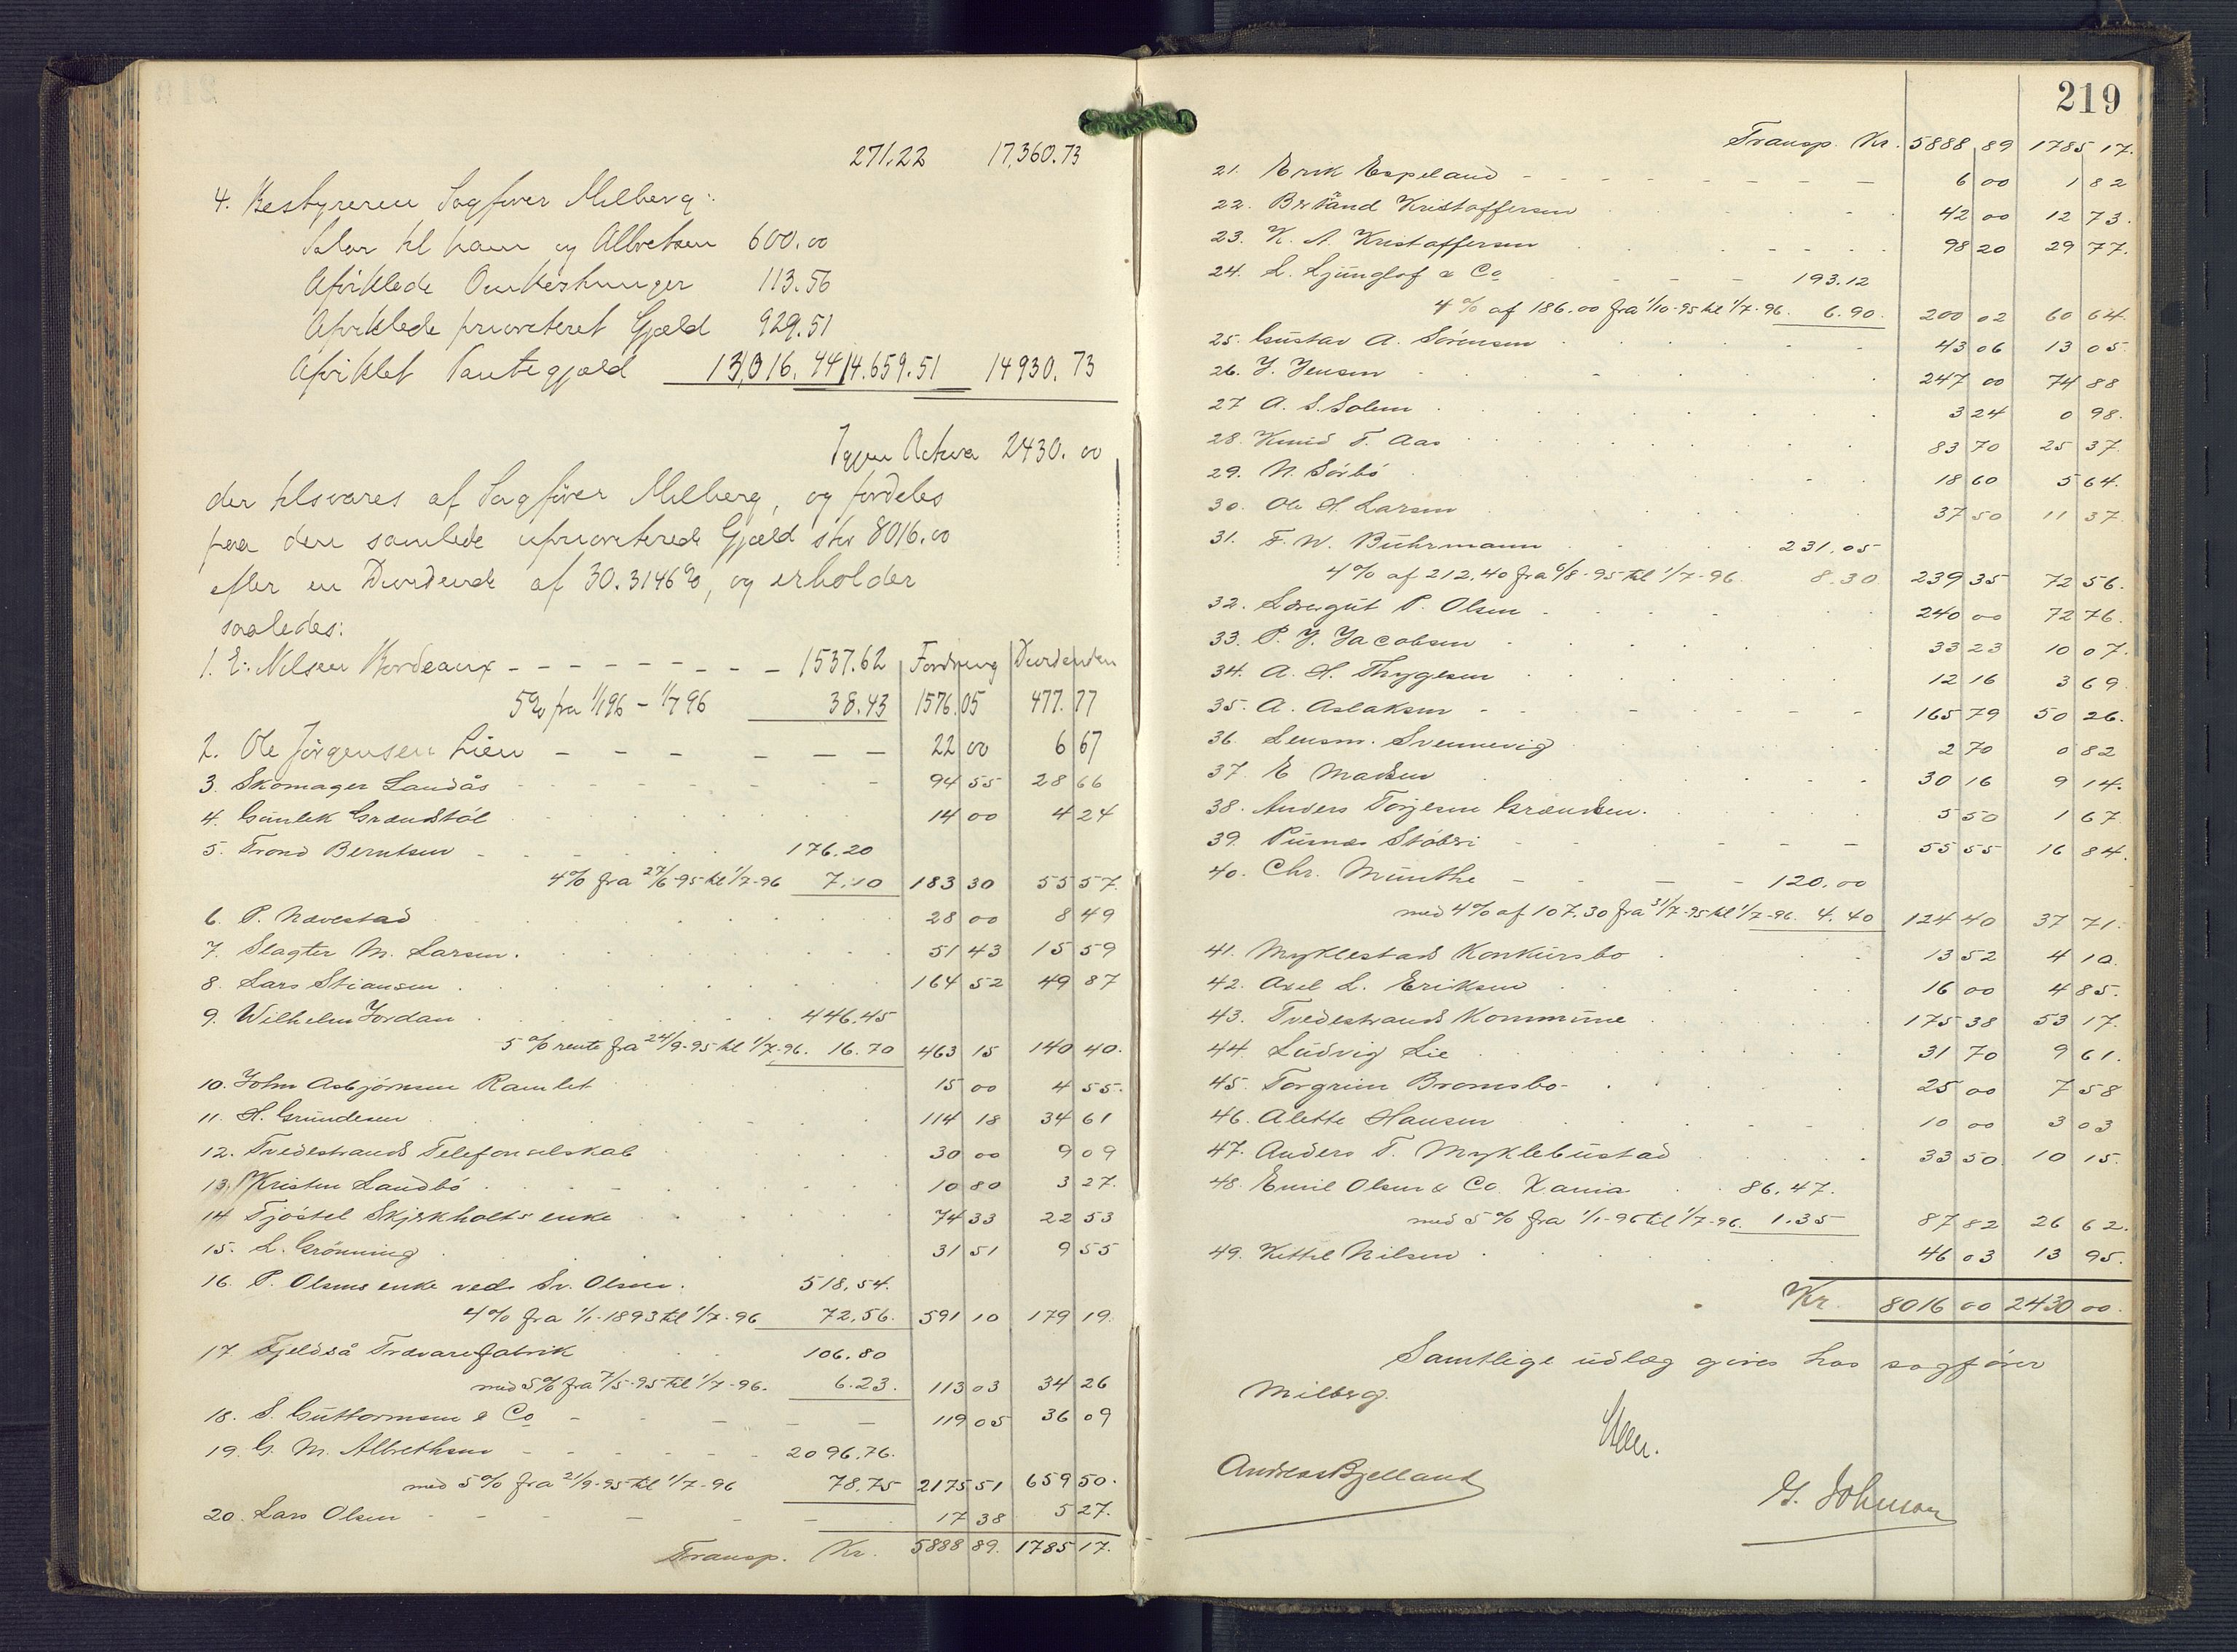 271.22 17,360.73
4. Bestyreren Sagfører Milberg:
Salær til ham og Albretsen 600.00
Afviklede Omkostninger 113.56
Afviklede prioriteret Gjæld 929.51
Afviklet Pantegjæld 13,016.44 14.659.51 14930.73
Igjen Activa 2430.00
der tilsvares af Sagfører Milberg, og fordeles
paa den samlede uprioriterede Gjæld stor 8016.00
efter en Dividende af 30.3146%, og erholder
saaledes:
1. E. Nilsen Bordeaux - - - - - - - - 1537.62 Fordring Dividenden
5% fra 1/1 96 - 1/7 96 38.43 1576.05 477.77
2. Ole Jörgensen Lien - - - - - - 22 00 6 67
3. Skomager Landås 94 55 28 66
4. Gunlek Grændstöl 14 00 4 24
5. Trond Berntsen 176.20
4% fra 27/6-95 til 1/7-96 7.10 183 30 55 57.
6. P. Nævestad 28 00 8 49
7. Slagter M. Larsen. 51 43 15 59
8. Lars Stiansen 164 52 49 87
9. Wilhelm Jordan 446.45
5% rente fra 24/9-95 til 1/7-96. 16.70 463 15 140 40.
10. John Asbjörnsen Ramlet 15 00 4 55.
11. H. Gundesen 114 18 34 61
12. Tvedestrands Telefonselskab 30 00 9 09
13. Kristen Landbö 10 80 3 27.
14 Tjöstel Skjerkholts enke 74 33 22 53
15. L. Grönning 31 51 9 55
16. P. Olsens enke ved Sv. Olsen. 518.54.
4% fra 1/1-1893 til 1/7-96 72.56. 591 10 179 19.
17. Fjeldså Trævarefabrik 106.80
med 5% fra 7/5-95 til 1/7-96. 6.23. 113 03 34 26
18. S. Guttormsen & Co - - - - 119 05 36 09
19. G. M. Albrethsen - - - - - - 2096.76.
med 5% fra 21/9-95 til 1/7-96 78.75 2175 51 659 50.
20. Lars Olsen - - - - - 17 38 5 27.
Transp. Kr. 5888 89. 1785 17.
219
Transp. Kr. 5888 89 1785 17.
21. Erik Espeland - - - - - - - 6 00 1 82
22. Bertrand Kristoffersen 42 00 12 73.
23. K. A. Kristoffersen 98 20 29 77.
24. L. Ljunglöf & Co 193.12
4% af 186.00 fra 1/10-95 til 1/7-96. 6.90. 200 02 60 64.
25. Gustav A. Sörensen 43 06 13 05.
26. J. Jensen 247 00 74 88
27 A. S. Solem 3 24 0 98.
28. Knud T. Aas 83 70 25 37.
29. N. Sörbö 18 60 5 64.
30. Ole H. Larsen 37 50 11 37
31. F. W. Bührmann 231.05
4% af 212.40 fra 6/8-95 til 1/7-96. 8.30 239 35 72 56.
32. Løvergut P. Olsen 240 00 72 76.
33. P. J. Jacobsen 33 23 10 07.
34. A. H. Thygesen 12 16 3 69.
35. A. Aslaksen - - - - - - - 165 79 50 26.
36. Lensm. Svennevig 2 70 0 82
37. E Madsen 30 16 9 14.
38. Anders Torjesen Grændsen. 5 50 1 67.
39. Pusnes Stöberi - - - - - - 55 55 16 84.
40. Chr. Munthe - - - - 120.00
med 4% af 107.30 fra 31/7-95 til 1/7-96. 4.40 124 40 37 71.
41. Myklestads Konkursbo 13 52 4 10.
42. Axel L. Eriksen 16 00 4 85.
43. Tvedestrands Kommune 175 38 53 17.
44. Ludvig Lie 31 70 9 61.
45. Torgrim Bromsbo 25 00 7 58
46. Alette Hansen 10 00 3 03
47. Anders T. Myklebustad 33 50 10 15.
48. Emil Olsen & Co. Xania 86.47.
med 5% fra 1/1-96 til 1/7-96. 1.35 87 82 26 62.
49. Kettil Nilsen 46 03 13 95.
Kr. 8016 00 2430 00.
Samtlige udlæg gives hos sagförer
Milberg.
Andreas Bjelland
G. Johnson